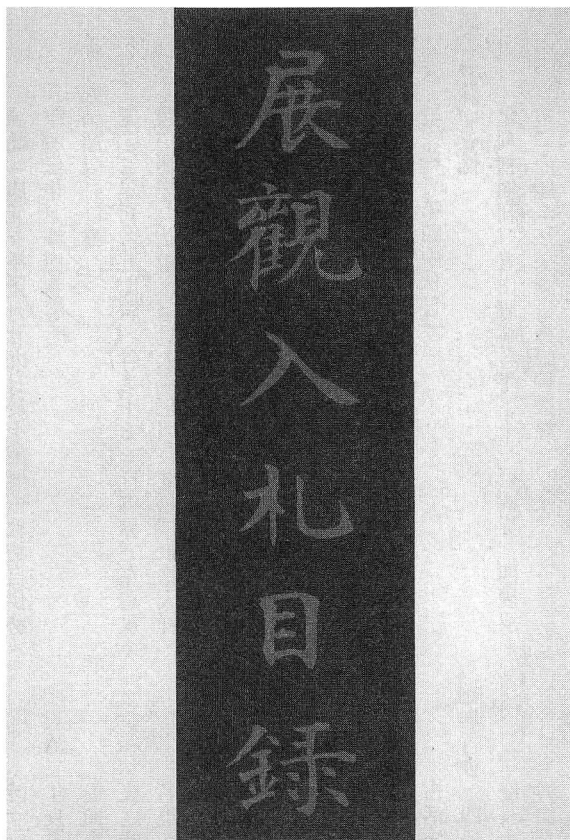 展觀入札目録